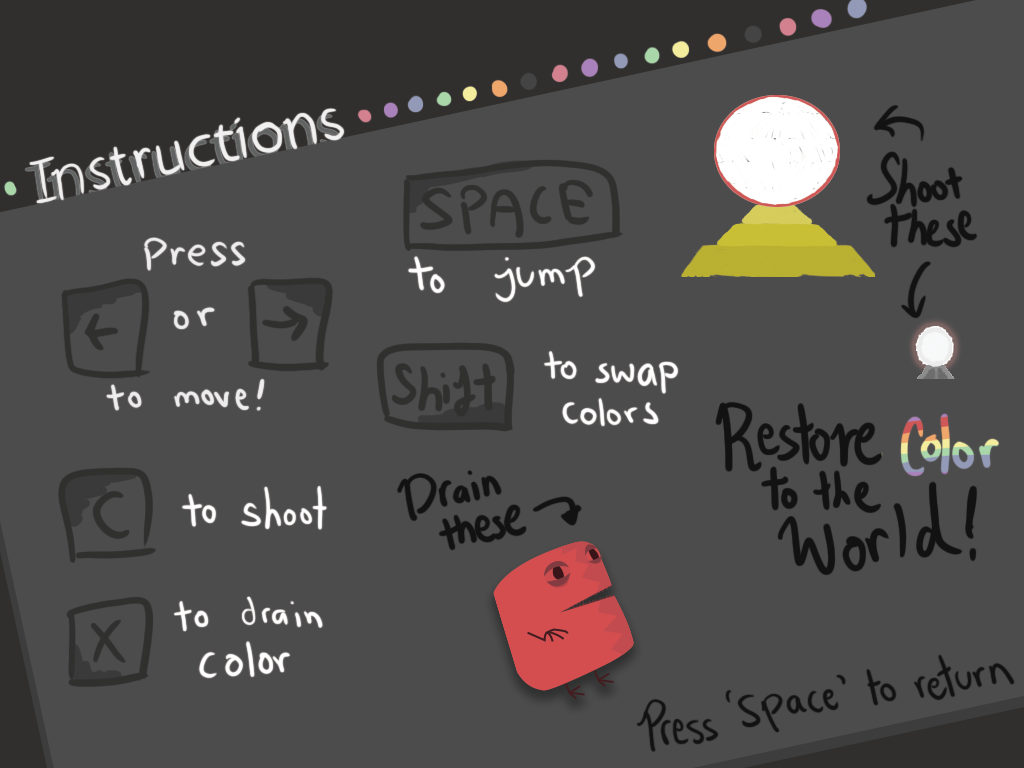 Instructions
Press
← or →
to move!
C to shoot
X to drain
color
SPACE
to jump
Shift to swap
colors
Drain
these
Shoot
these
Restore Color
to the
World!
Press 'Space' to return